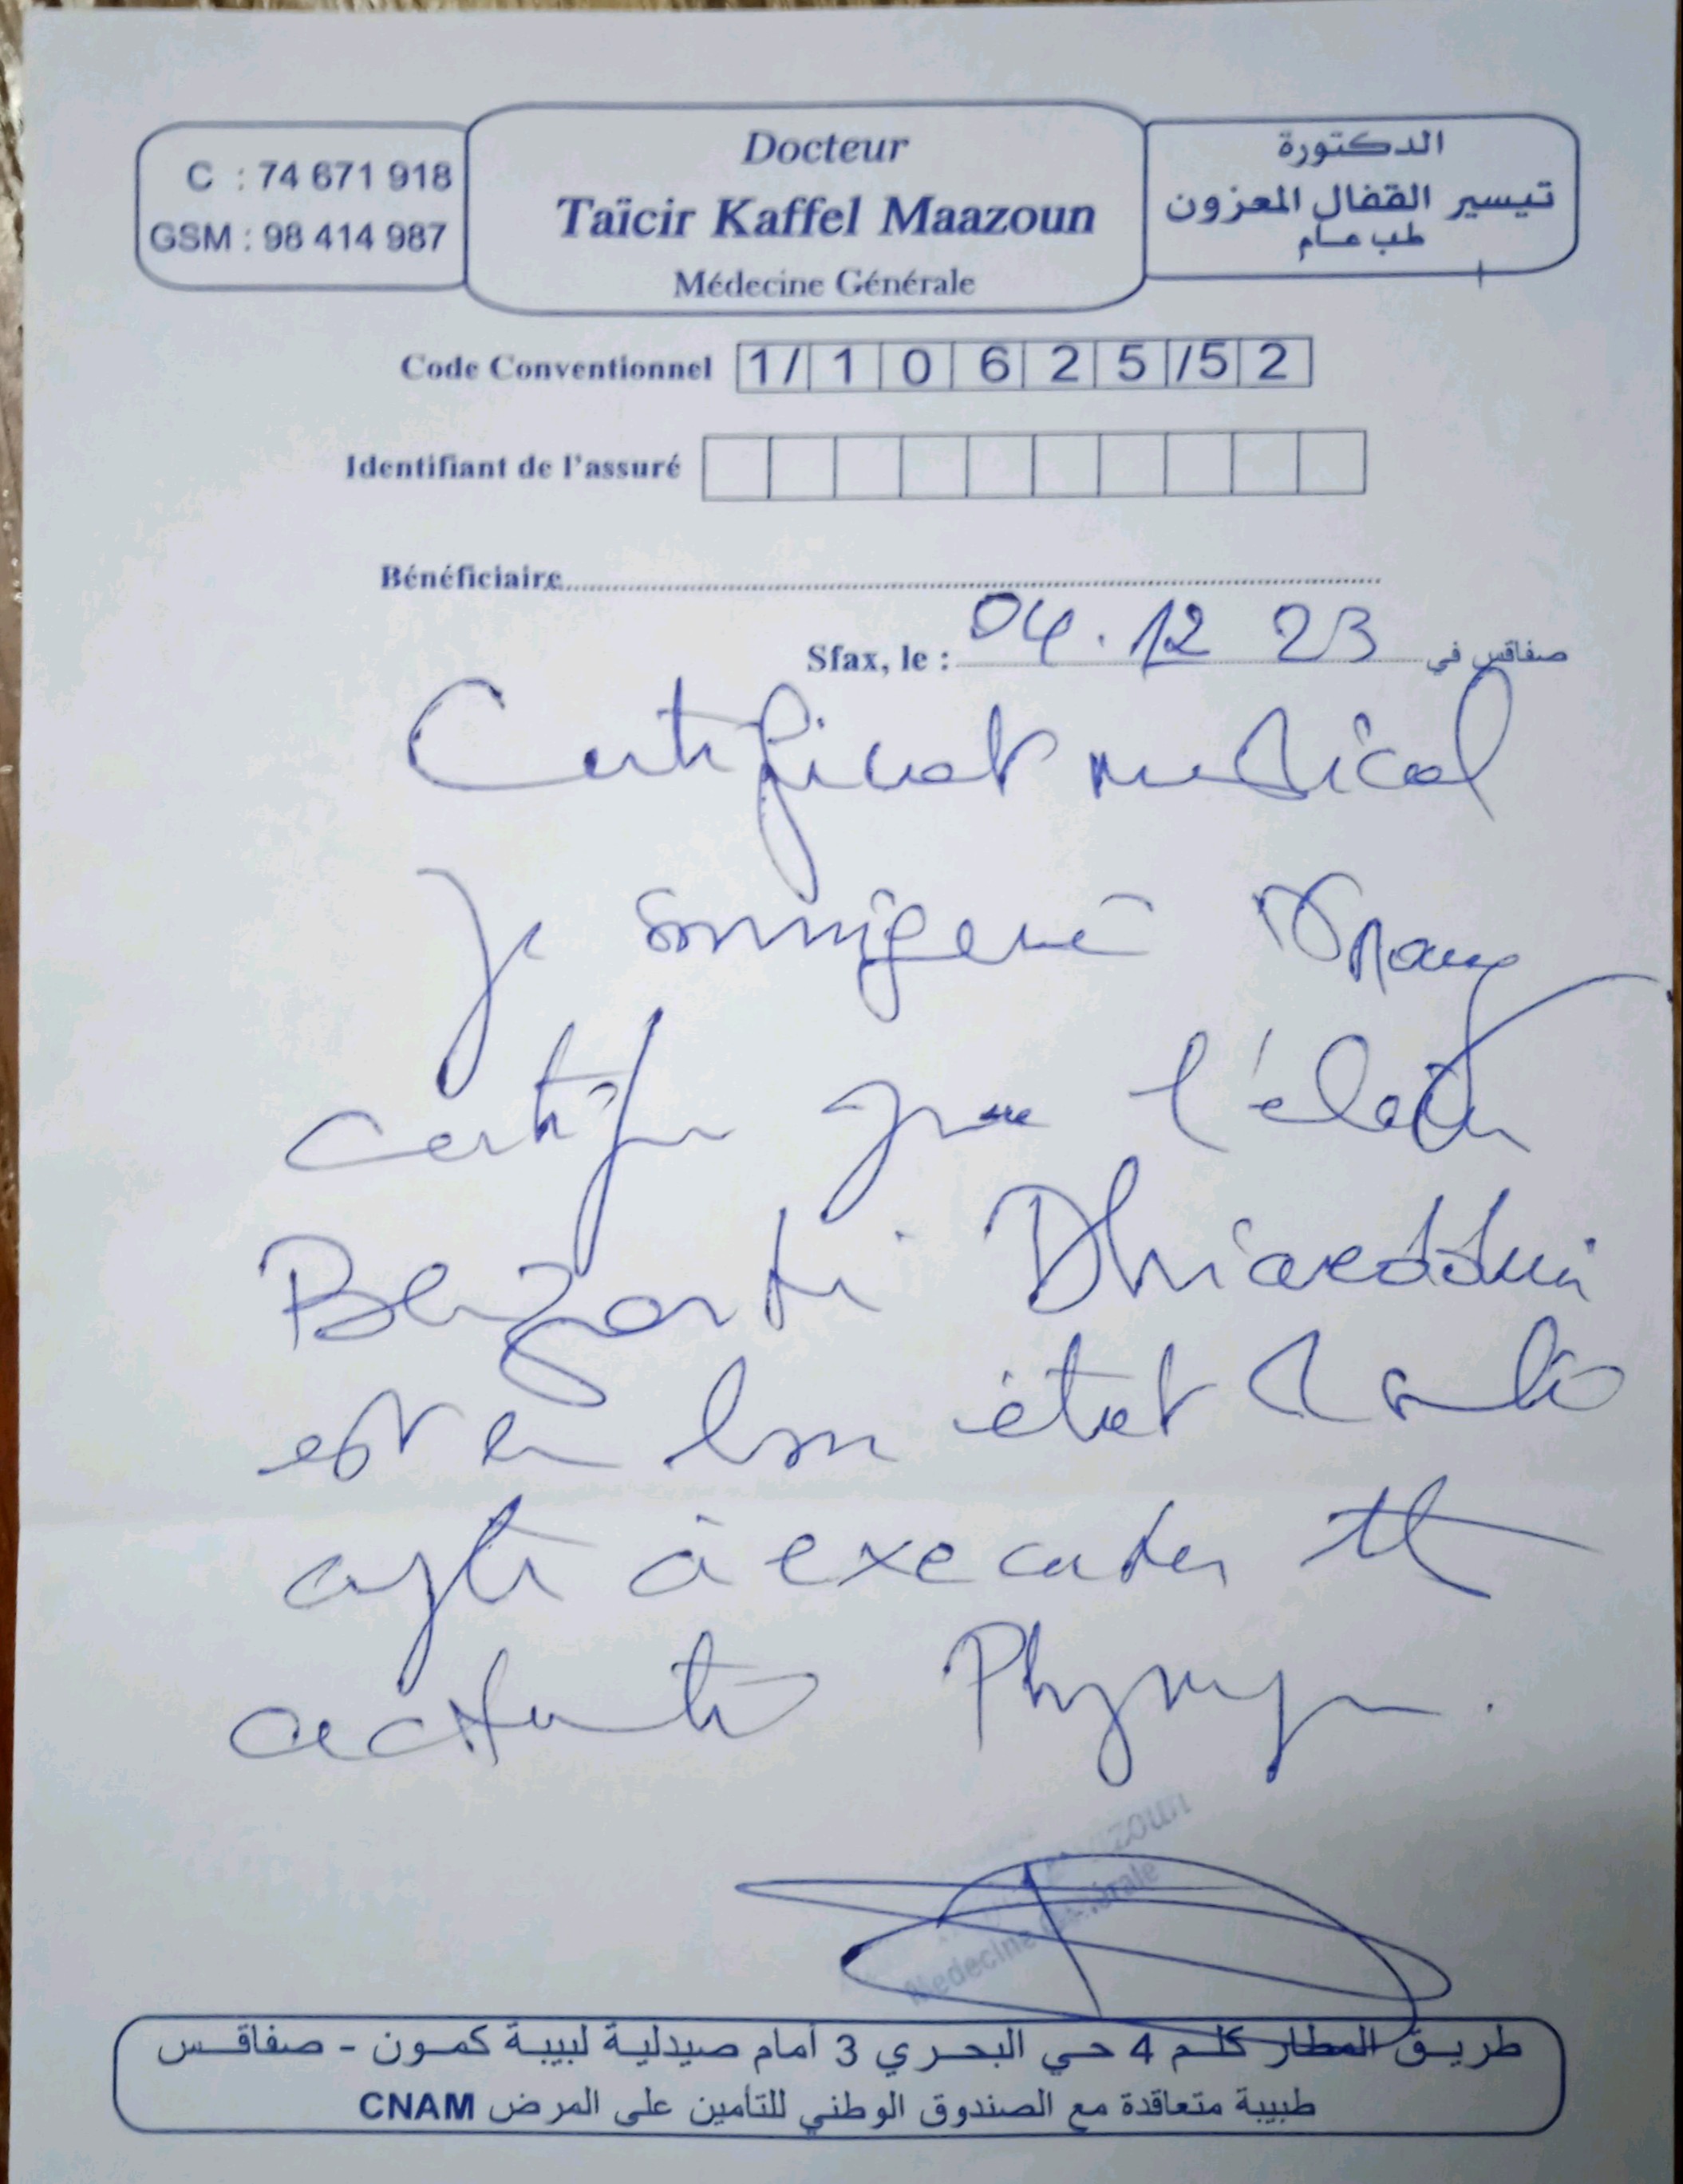 C : 74 671 918
GSM : 98 414 987
Docteur
Taïcir Kaffel Maazoun
Médecine Générale
الدكتورة
تيسير القفال المعزون
طب عام
Code Conventionnel 1/ 1 0 6 2 5 /5 2
Identifiant de l'assuré
Bénéficiaire
Sfax, le : 04.12 23 صفاقس في
Certificat medical
Je soussigné
certifie que l'
Benzarti Dhiaeddine
est en bon état de santé
apte à executer tt
activité Physique.
zoun
Medecine Générale
طريق المطار كلم 4 حي البحري 3 أمام صيدلية لبيبة كمون - صفاقس
طبيبة متعاقدة مع الصندوق الوطني للتأمين على المرض CNAM